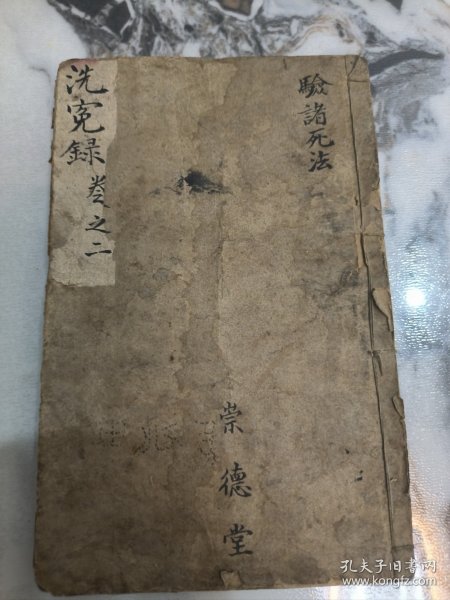 驗諸死法
洗寃録 卷之二
崇德堂
孔夫子旧书网
www.kongfz.com